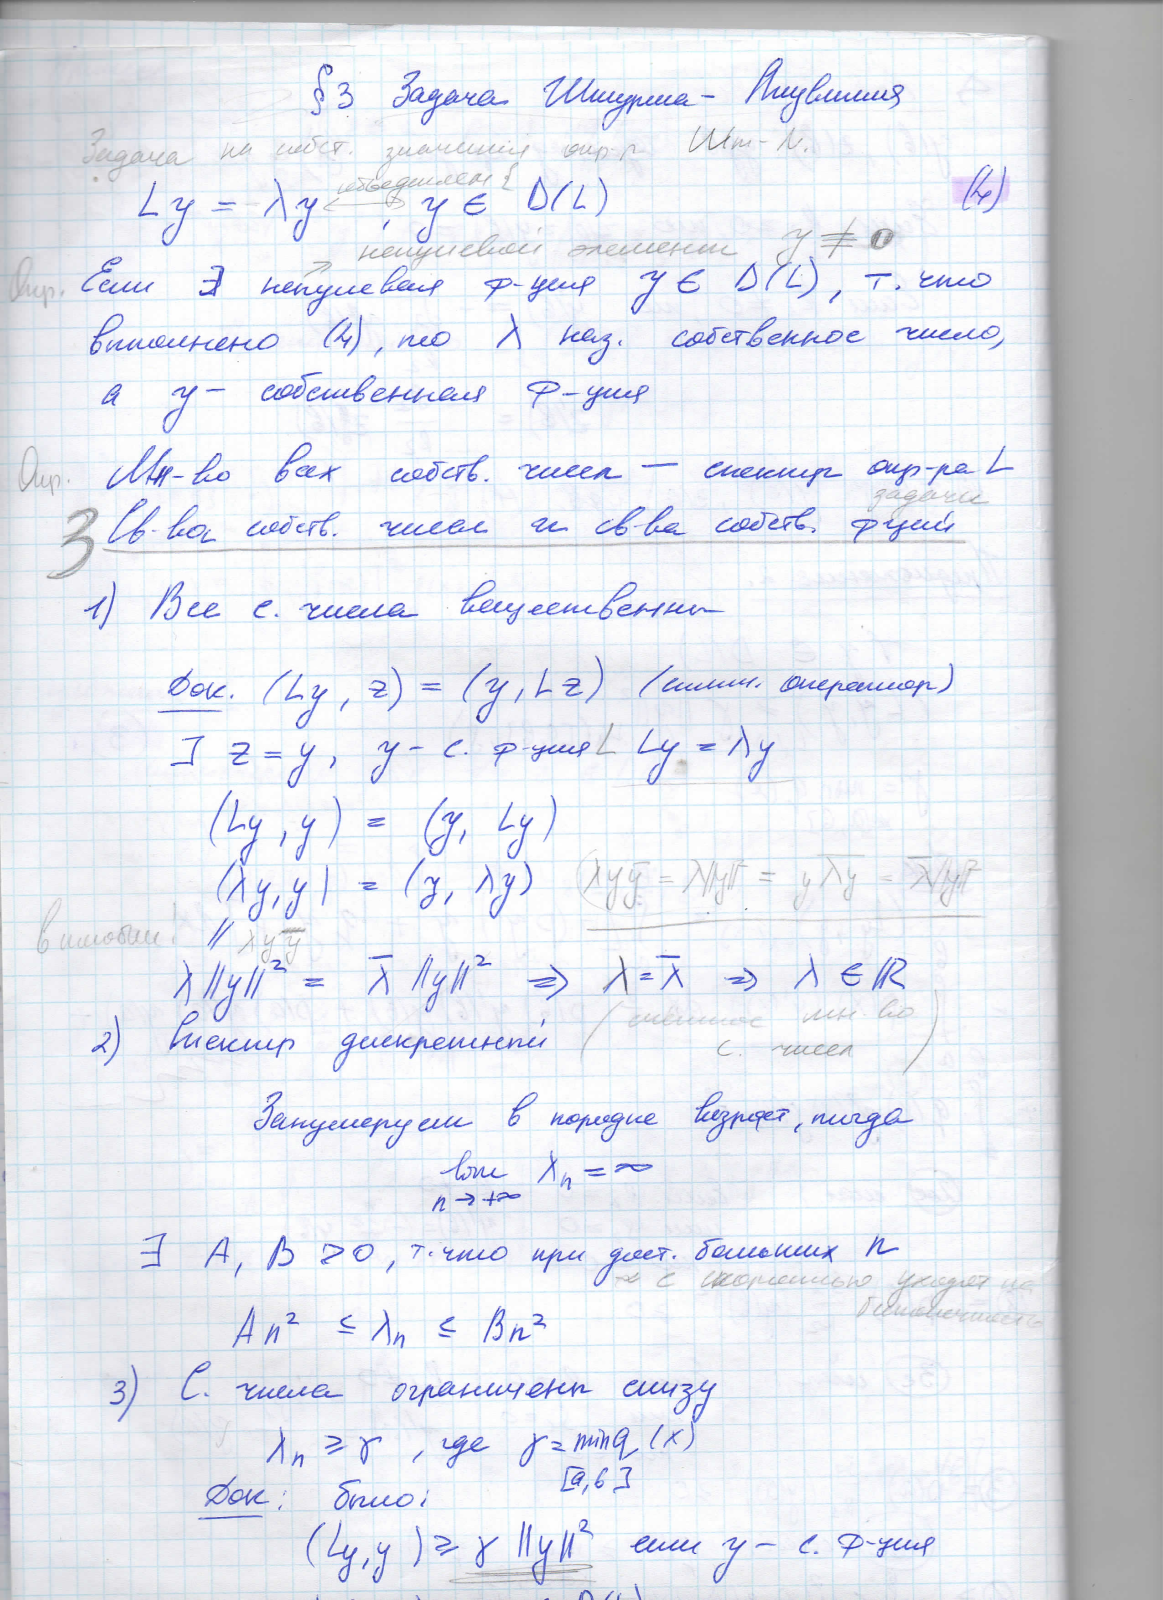 §3 Задача Штурма - Лиувилля
Задача на собст. значения опр-р Шт-Л.
объединяем {
Ly = λy , y ∈ D(L) (4)
ненулевой элемент y ≢ 0
Опр. Если ∃ ненулевая ф-ция y ∈ D(L), т.что
выполнено (4), то λ наз. собственное число,
а y - собственная ф-ция
Опр. Мн-во всех собств. чисел — спектр опр-ра L
задачи
3 Св-ва собств. чисел и св-ва собств. ф-ций
1) Все с. числа вещественны
Док. (Ly, z) = (y, Lz) (симм. оператор)
∃ z = y, y - с. ф-ция L Ly = λy
(Ly, y) = (y, Ly)
(λy, y) = (y, λy) (λyȳ = λ||y||² = y λ̄y̅ = λ̄||y||²
|| λyȳ
λ||y||² = λ̄ ||y||² ⇒ λ = λ̄ ⇒ λ ∈ ℝ
2) Спектр дискретный (счетное мн-во
с. чисел)
Занумеруем в порядке возраст, тогда
lim λn = ∞
n → +∞
∃ A, B > 0, т.что при дост. больших n
с скоростью уходят на
бесконечность
An² ≤ λn ≤ Bn²
3) С. числа ограничены снизу
λn ≥ γ , где γ = min q (x)
[a, b]
Док: было:
(Ly, y) ≥ γ ||y||² если y - с. ф-ция